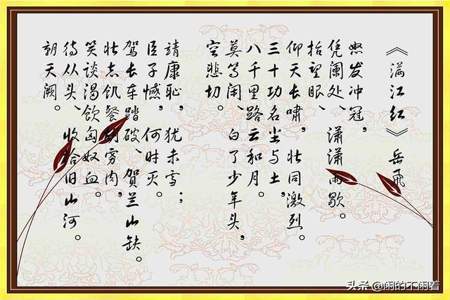 《满江红》 岳飞
怒发冲冠,
凭阑处、潇潇雨歇。
抬望眼、
仰天长啸,壮怀激烈。
三十功名尘与土,
八千里路云和月。
莫等闲、白了少年头,
空悲切。
靖康耻,犹未雪;
臣子憾,何时灭。
驾长车踏破、贺兰山缺。
壮志饥餐胡虏肉,
笑谈渴饮匈奴血。
待从头、收拾旧山河。
朝天阙。
头条